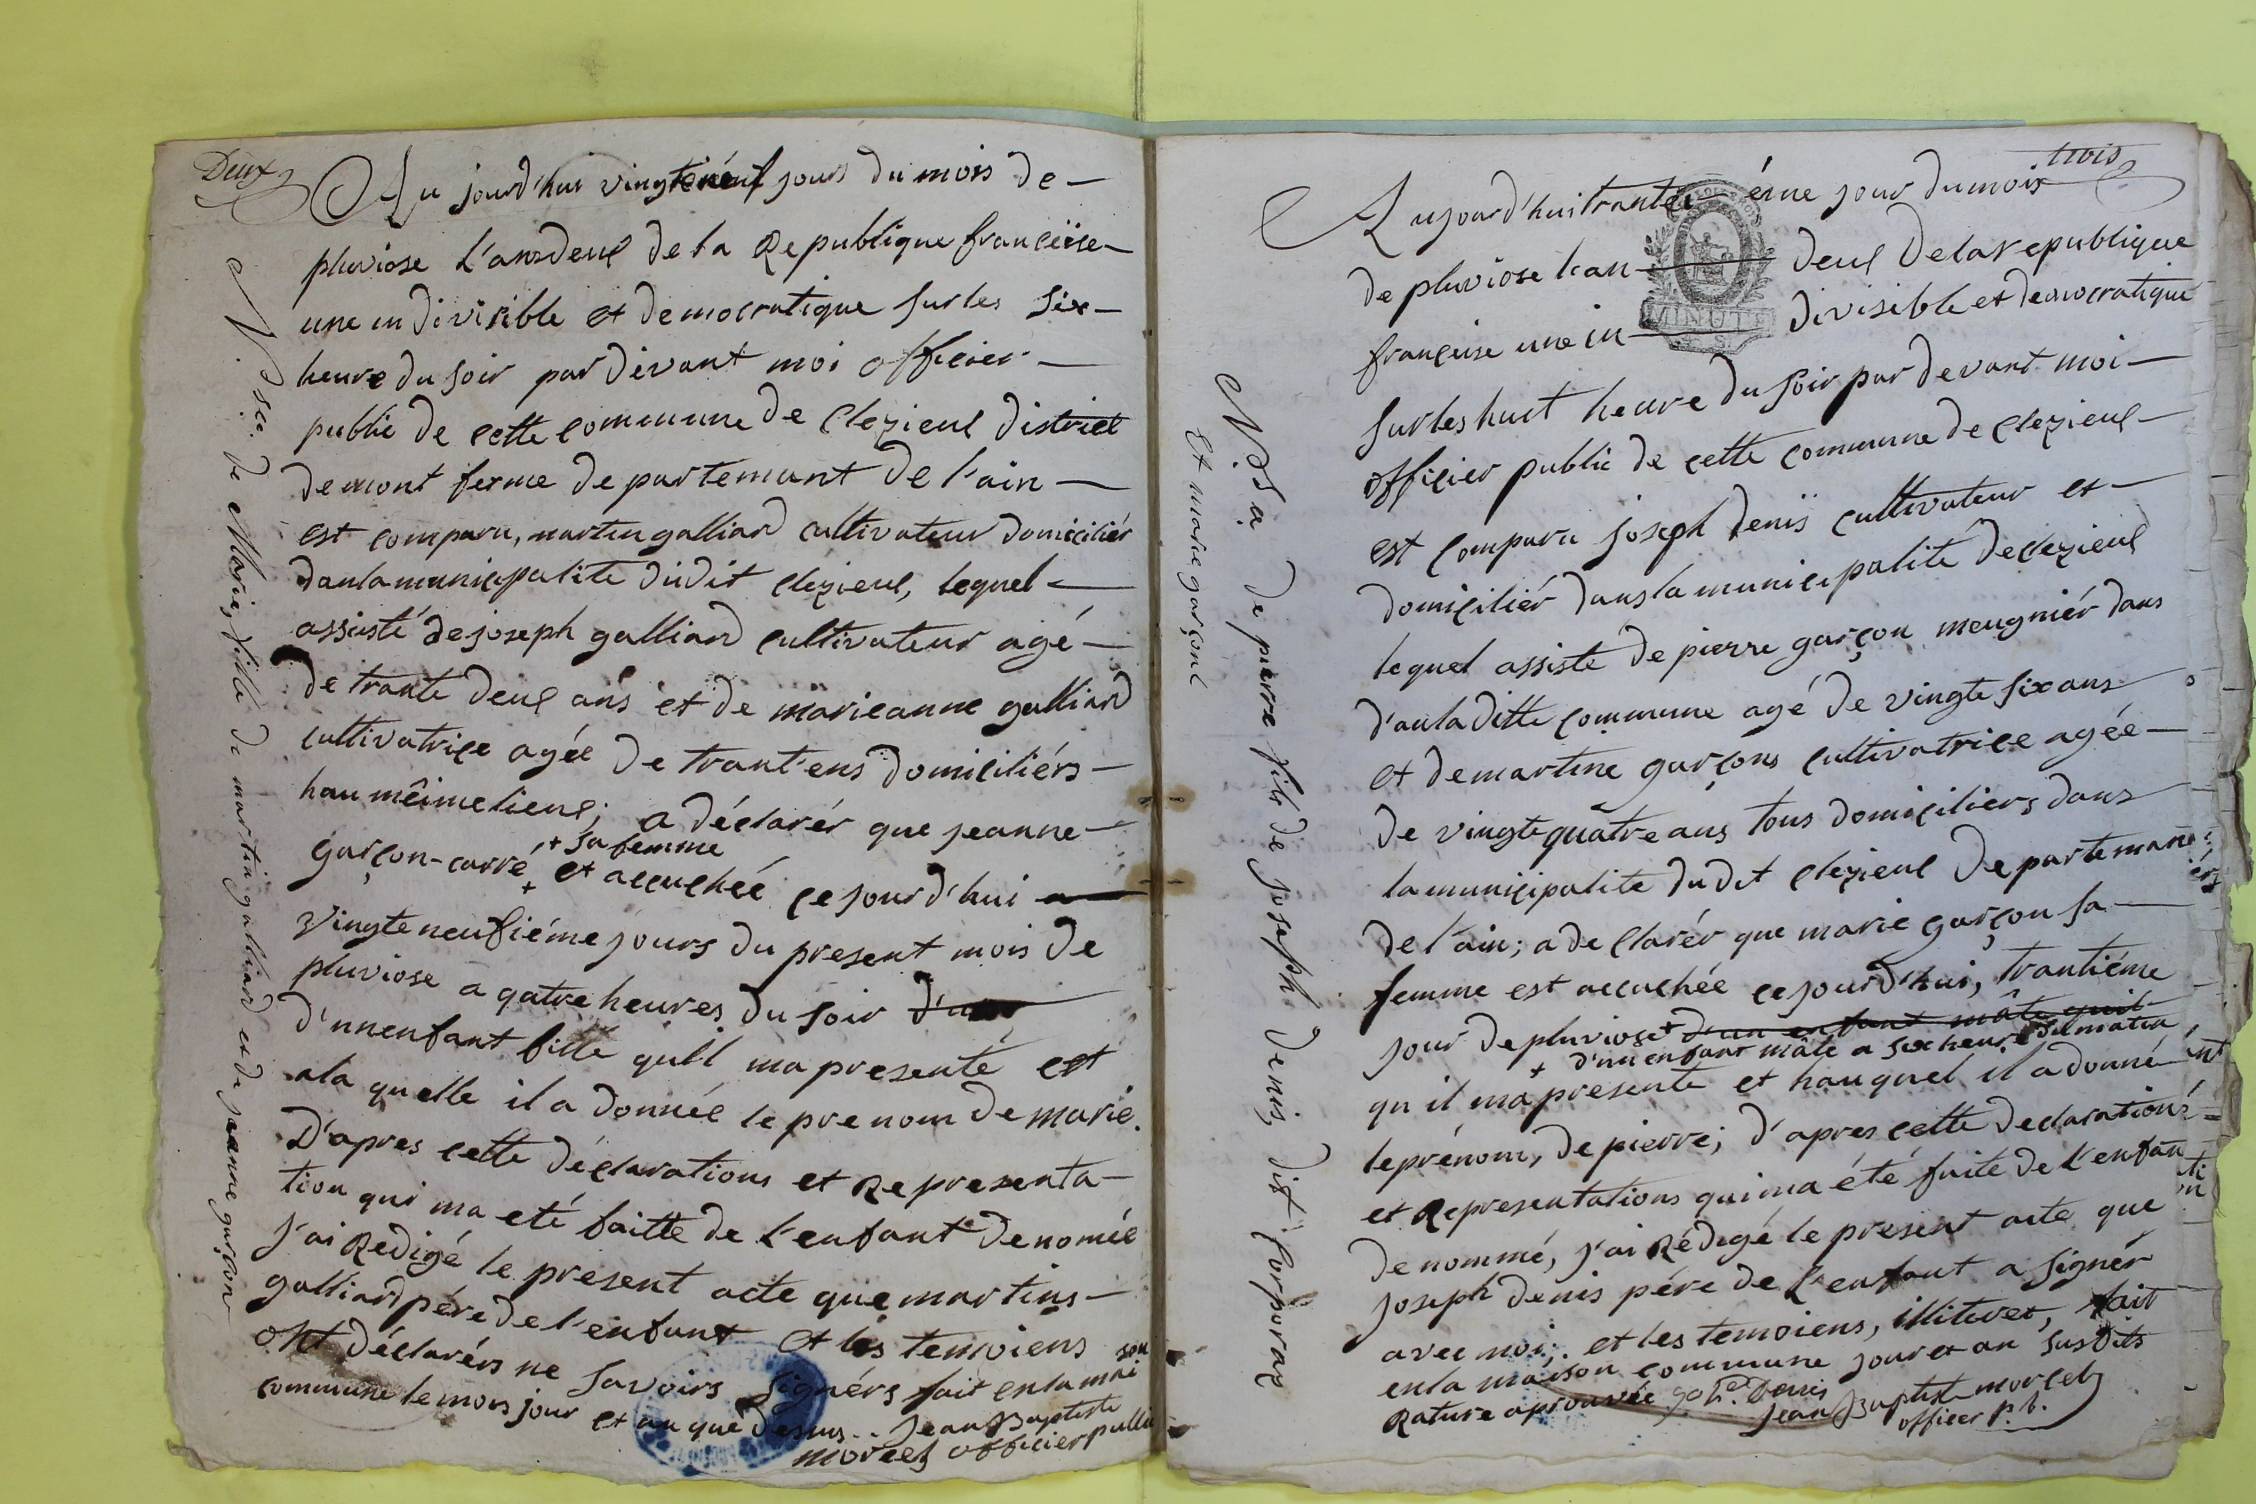 Deux
Au jourd'hui vingteneuf jours du mois de
pluviose l'ans deux de la Republique franceise
une indivisible et democratique sur les six
heure du soir par devant moi officier
public de cette commune de Clezieux district
de mont ferme departemant de l'ain
est comparu, martin galliard cultivateur domiciliér
dans la municipalite dudit clezieux, lequel
assisté de joseph galliard cultivateur agé
de trante deux ans et de marieanne galliard
cultivatrice agée de trant'ens domiciliérs
hau mêime lieux; a déclarér que jeanne
garçon-carré + et accuchée ce jourd'hui
+ sa femme
vingte neufiéme jours du present mois de
pluviose a qatre heures du soir
d'un enfant fille qu'il ma presenté est
a la quelle il a donnée le prenom de marie.
D'apres cette déclarations et Representa-
tion qui ma eté faitte de l'enfant denomée
j'ai Redigé le present acte que martins
galliard pére de l'enfant et les temoiens
ont déclarérs ne savoirs signérs fait en la mai
son
commune le mois jour et an que dessus.. jean Baptiste
morcel officier public
Nsce. de Marie, fille de martin galliard et de jeanne garçon
trois
Aujourd'hui trantiéme jour du mois
de pluviose l'an deux de la republique
françeise une indivisible et democratique
MINUTE
sur les huit heure du soir par devant moi
officier public de cette commune de Clezieux
est comparu joseph denis cultivateur et
domiciliér dans la municipalité de clezieux
lequel assiste de pierre garçon meugniér dans
d'au la ditte commune agé de vingte six ans
et de martine garçons cultivatrice agée
de vingte quâtre ans tous domiciliers dans
la municipalite du dit Clezieux departemant
de l'ain; a declarér que marie garçon sa
femme est accuchée ce jourd'hui, trantiéme
jour de pluviose + d'un enfant mâle quil
+ d'un enfant mâle a six heure du matin,
qu il ma présenté et hauquel il a donné
le prénom, de pierre; d'apres cette declaration
et Representations qui ma été faite de l'enfant
denommé, j'ai Rédigé le present acte que
joseph denis pére de l'enfant a signér
avec moi; et les temoiens, illiteret, fait
en la maison commune jour et an susdits
Rature aprouvée Joh. Denis
jean Baptiste morcel
officer p. b.
Nsa. de pierre fils de joseph denis, dit Corporar
et marie garçont